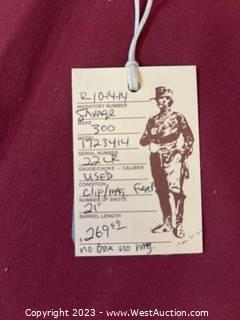 R 10-14-14
INVENTORY NUMBER
Savage
MAKE
300
MODEL
1723414
SERIAL NUMBER
22LR
GAUGE/CHOKE - CALIBER
USED
CONDITION
Clip/mag Feed
NUMBER OF SHOTS
21"
BARREL LENGTH
$ 269
no box no mag.
Copyright 2023 - www.WestAuction.com